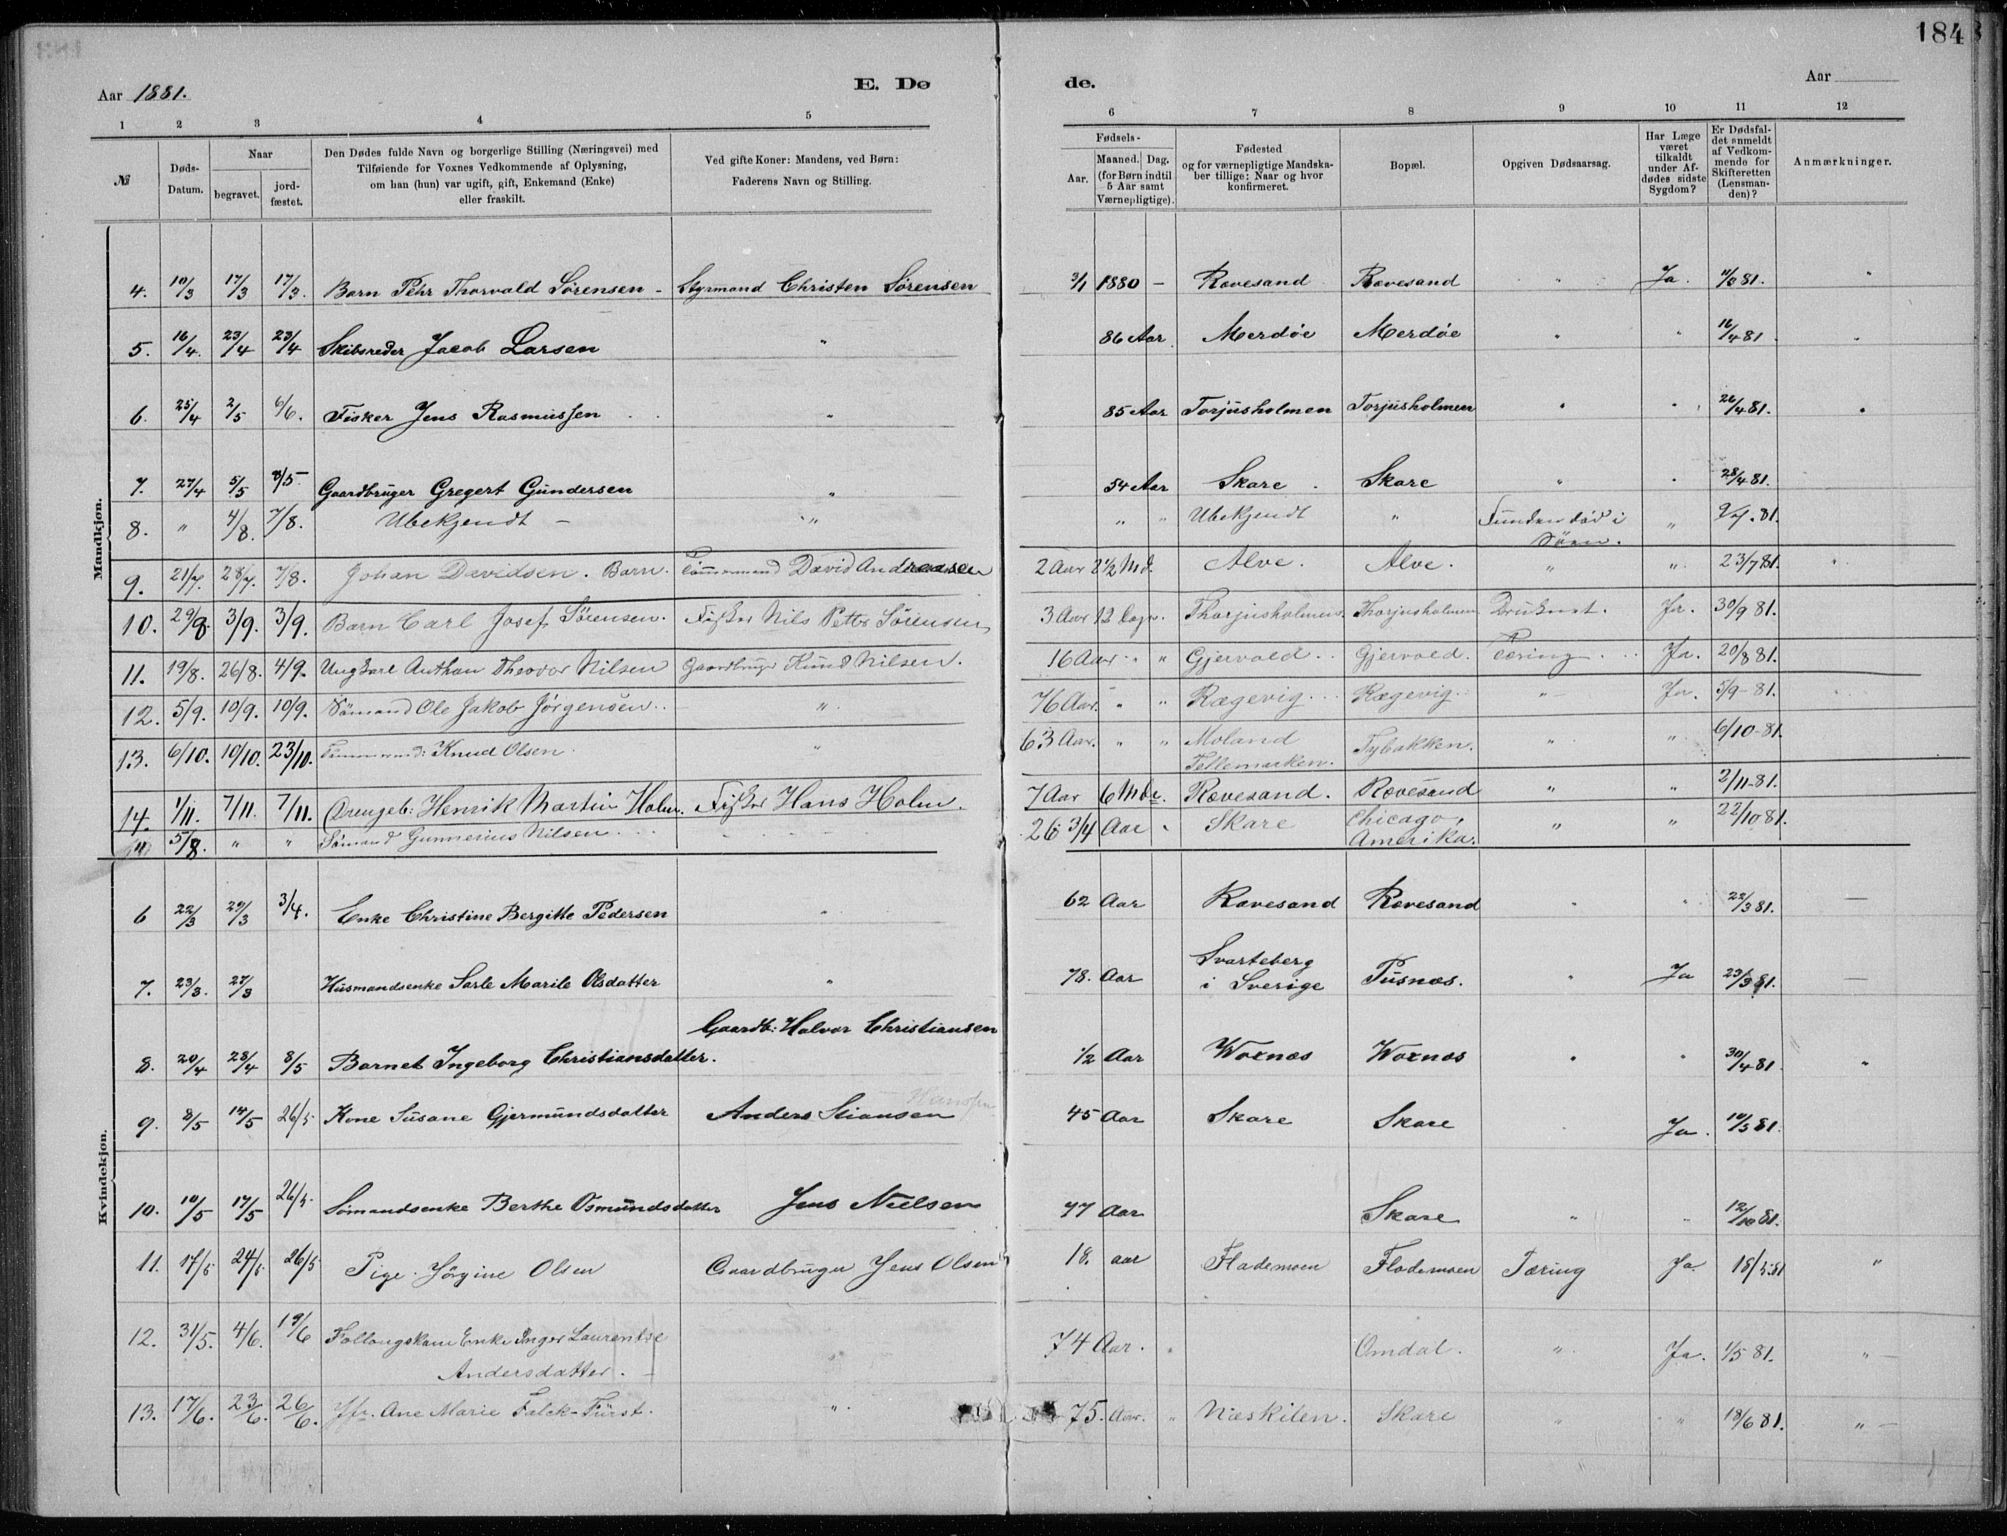 184
Aar 1881. E. Dø de. Aar
1 2 3 4 5 6 7 8 9 10 11 12
№
Døds-Datum.
Naar
begravet.
jord-fæstet.
Den Dødes fulde Navn og borgerlige Stilling (Næringsvei) med
Tilføiende for Voxnes Vedkommende af Oplysning,
om han (hun) var ugift, gift, Enkemand (Enke)
eller fraskilt.
Ved gifte Koner: Mandens, ved Børn:
Faderens Navn og Stilling.
Fødsels-
Aar.
Maaned. Dag.
(for Børn indtil
5 Aar samt
Værnepligtige).
Fødested
og for værnepligtige Mandska-
ber tillige: Naar og hvor
konfirmeret.
Bopæl.
Opgiven Dødsaarsag.
Har Læge
været
tilkaldt
under Af-
dødes sidste
Sygdom?
Er Dødsfal-
det anmeldt
af Vedkom-
mende for
Skifteretten
(Lensman-
den)?
Anmærkninger.
Mandkjøn.
4. 10/3 17/3 17/3. Barn Pehr Thorvald Sørensen - Styrmand Christen Sørensen 3/1 1880 - Rævesand Rævesand " Ja. 81. "
5. 16/4. 23/4 23/4 Skibsreder Jacob Larsen " 86 Aar Merdøe Merdøe " " 16/4 81. "
6. 25/4 2/5 6/6. Fisker Jens Rasmussen " 85 Aar Torjusholmen Torjusholmen " " 26/4 81. "
7. 27/4 5/5 8/5 Gaardbruger Gregert Gundersen " 54 Aar Skare. Skare " " 28/4 81.
8. " 4/8. 7/8. Ubekjendt - " " " Ubekjendt " Funden død i " 81.
Søen.
9. 21/7. 28/7. 7/8. Johan Davidsen. Barn. Tømmermand David Andreasen 2 Aar 2½ Md. Alve. Alve. " " 23/7 81. "
10. 29/8. 3/9. 3/9. Barn Carl Josef Sørensen. Fisker Nils Petter Sørensen 3 Aar 12 Dage. Thorjusholmen. Thorjusholmen Druknet. Ja. 30/9 81.
11. 19/8. 26/8. 4/9. Ungkarl Anthon Theodor Nilsen Gaardbruger Knud Nilsen. 16 Aar " " Gjervold. Gjervold. Tæring Ja. 20/8 81.
12. 5/9. 10/9. 10/9. Sømand Ole Jakob Jørgensen. " 76 Aar. " " Rægevig. Rægevig " Ja. 5/9 - 81.
13. 6/10. 10/10. 23/10. Tømmermd: Knud Olsen. " 63 Aar. " " Moland Tybakken. " " 6/10-81.
Tellemarken.
14. 1/11. 7/11. 7/11. Drengeb: Henrik Martin Holm. Fisker Hans Holm. 7 Aar 6 Mdr. Rævesand. Rævesand " " 2/11-81.
5/8. " " Sømand Gunnerius Nilsen 26 3/4 Aar " Skare Chicago, " " 22/10 81.
Amerika.
Kvindekjøn.
6 22/3 29/3 3/4. Enke Christine Bergitte Pedersen " 62 Aar Rævesand Rævesand " " 22/3 81. -
7. 23/3. 27/3 Husmandsenke Sarle Marile Olsdatter " 78. Aar Svarteberg
i Sverige Pusnæs. " Ja 23/3 81. -
Gaardb: Halvor Christiansen
8. 20/4 28/4 8/5 Barnet Ingeborg Christiansdatter. 1/2 Aar Woxnæs Woxnæs " " 30/4 81. "
Hanssen
9. 8/5 14/5 26/5 Kone Susane Gjermundsdatter Anders Stiansen 45 Aar Skare Skare Ja. 10/5 81.
10. 10/5 17/5 26/5. Sømandsenke Berthe Osmundsdatter Jens Nielsen 77 Aar Skare " " 12/10 81.
11. 17/5 24/5 26/5 Pige. Jørgine Olsen Gaardbruger Jens Olsen 18. aar Flademoen Flademoen Tæring Ja 18/5 81 "
12. 31/5. 4/6. 19/6 Enke Inger Laurentze
Andersdatter. - " 74 Aar. " Omdal. " Ja. 1/5 81. "
13. 17/6. 23/6. 26/6. Jfr. Ane Marie Falck-Fürst. " 75. Aar. " Næskilen. Skare " " 18/6 81. "